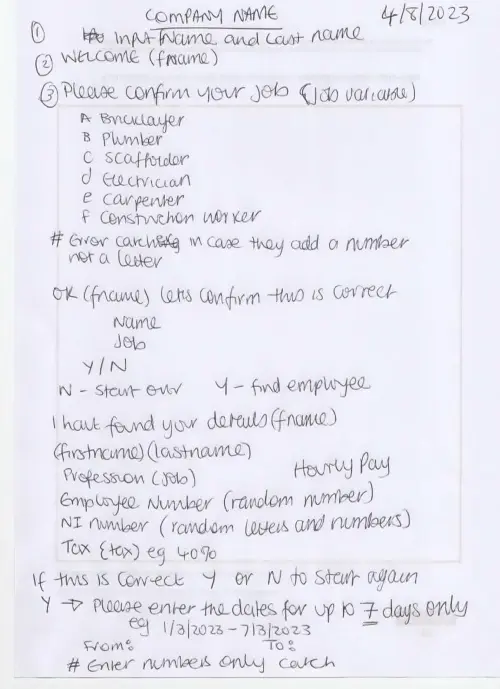 COMPANY NAME
4/8/2023
① Input Name and Last name
② Welcome (fname)
③ Please confirm your job (job variable)
A Bricklayer
B Plumber
C Scaffolder
d Electrician
e Carpenter
f Construction worker
# Error catching in case they add a number
not a letter
OK (fname) lets confirm this is correct
Name
Job
Y/N
N - Start over Y - find employee
I have found your details (fname)
(firstname) (lastname)
Profession (job) Hourly Pay
Employee Number (random number)
NI number (random letters and numbers)
Tax (tax) eg 40%
If this is correct Y or N to start again
Y → Please enter the dates for up to 7 days only
eg 1/3/2023 - 7/3/2023
From: To:
# Enter numbers only catch